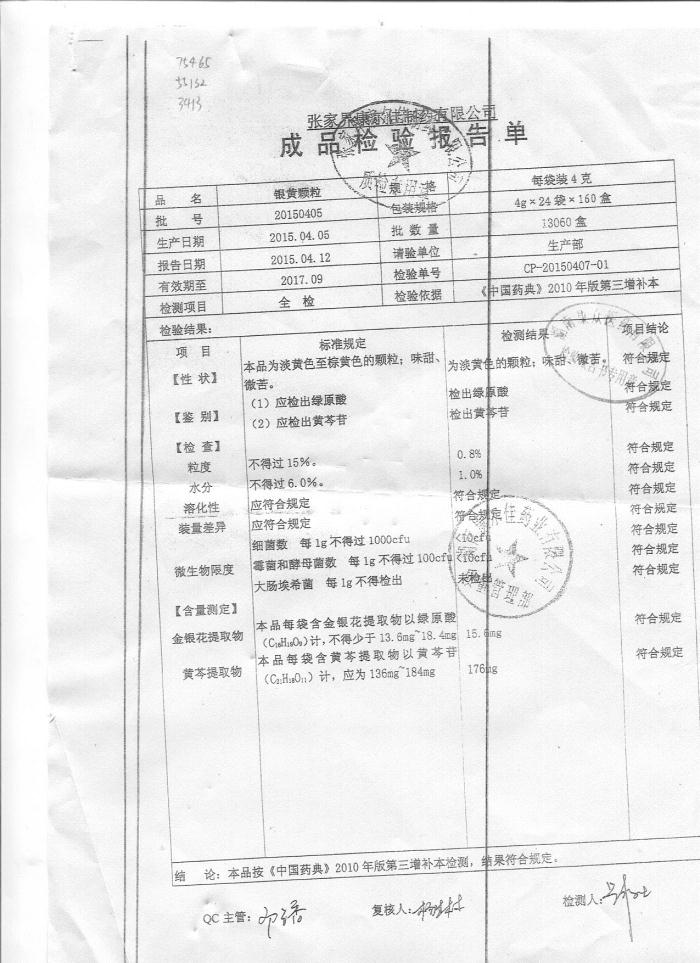 75465
53132
3413
张家界康尔佳制药有限公司
成品检验报告单
品 名 银黄颗粒 规 格 每袋装4克
批 号 20150405 包装规格 4g×24袋×160盒
生产日期 2015.04.05 批 数 量 13060盒
报告日期 2015.04.12 请验单位 生产部
有效期至 2017.09 检验单号 CP-20150407-01
检测项目 全 检 检验依据 《中国药典》2010年版第三增补本
检验结果:
项 目 标准规定 检测结果 项目结论
【性 状】 本品为淡黄色至棕黄色的颗粒;味甜、 为淡黄色的颗粒;味甜、微苦。 符合规定
微苦。
【鉴 别】 (1)应检出绿原酸 检出绿原酸 符合规定
(2)应检出黄芩苷 检出黄芩苷 符合规定
【检 查】
粒度 不得过15%。 0.8% 符合规定
水分 不得过6.0%。 1.0% 符合规定
溶化性 应符合规定 符合规定 符合规定
装量差异 应符合规定 符合规定 符合规定
微生物限度 细菌数 每1g不得过1000cfu <10cfu 符合规定
霉菌和酵母菌数 每1g不得过100cfu <10cfu 符合规定
大肠埃希菌 每1g不得检出 未检出 符合规定
【含量测定】
金银花提取物 本品每袋含金银花提取物以绿原酸
(C₁₆H₁₈O₉)计,不得少于13.6mg~18.4mg 15.6mg 符合规定
黄芩提取物 本品每袋含黄芩提取物以黄芩苷
(C₂₁H₁₈O₁₁)计,应为136mg~184mg 176mg 符合规定
结 论:本品按《中国药典》2010年版第三增补本检测,结果符合规定。
QC主管: 复核人: 检测人:
质检专用章
质量管理部